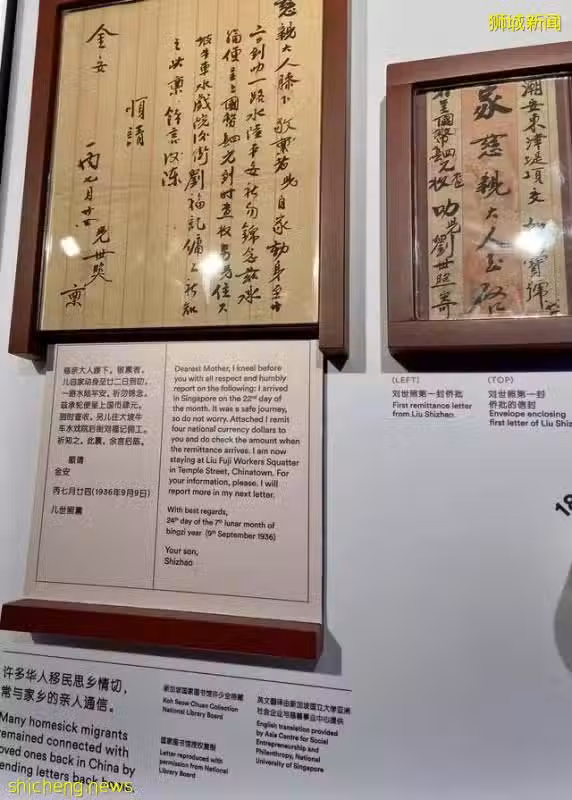 狮城新闻
慈親大人膝下敬禀者兒自家動身至廿
二日到叻一路水陸平安祈勿錦念茲承
輪便呈上國幣四元到时查收另兒住大
坡牛車水戲院後街劉福記傭工祈知
之此禀餘言後陳
順請
金安
丙七月廿四 兒世照 禀
潮安東津堤頂交
家慈親大人玉啓
國幣四元查收 叻兒劉世照寄
慈亲大人膝下，敬禀者，
儿自家动身至廿二日到叻，
一路水陆平安，祈勿锦念。
兹承轮便呈上国币肆元，
到时查收。另儿住大坡牛
车水戏院后街刘福记佣工。
祈知之。此禀，余言后陈。
顺请
金安
丙七月廿四(1936年9月9日)
儿世照禀
Dearest Mother, I kneel before
you with all respect and humbly
report on the following: I arrived
in Singapore on the 22nd day of
the month. It was a safe journey,
so do not worry. Attached I remit
four national currency dollars to
you and do check the amount when
the remittance arrives. I am now
staying at Liu Fuji Workers Squatter
in Temple Street, Chinatown. For
your information, please. I will
report more in my next letter.
With best regards,
24th day of the 7th lunar month of
bingzi year (9th September 1936)
Your son,
Shizhao
(LEFT)
刘世照第一封侨批
First remittance letter
from Liu Shizhao
(TOP)
刘世照第一封
侨批的信封
Envelope enclosing
first letter of Liu Shiz
18
许多华人移民思乡情切，
常与家乡的亲人通信。
Many homesick migrants
remained connected with
oved ones back in China by
ending letters back
新加坡国家图书馆许少全特藏
Koh Seow Chuan Collection
National Library Board
国家图书馆授权复制
Letter reproduced with
permission from National
Library Board
英文翻译由新加坡国立大学亚洲
社会企业与慈善事业中心提供
English translation provided
by Asia Centre for Social
Entrepreneurship and
Philanthropy, National
University of Singapore
shicheng.news